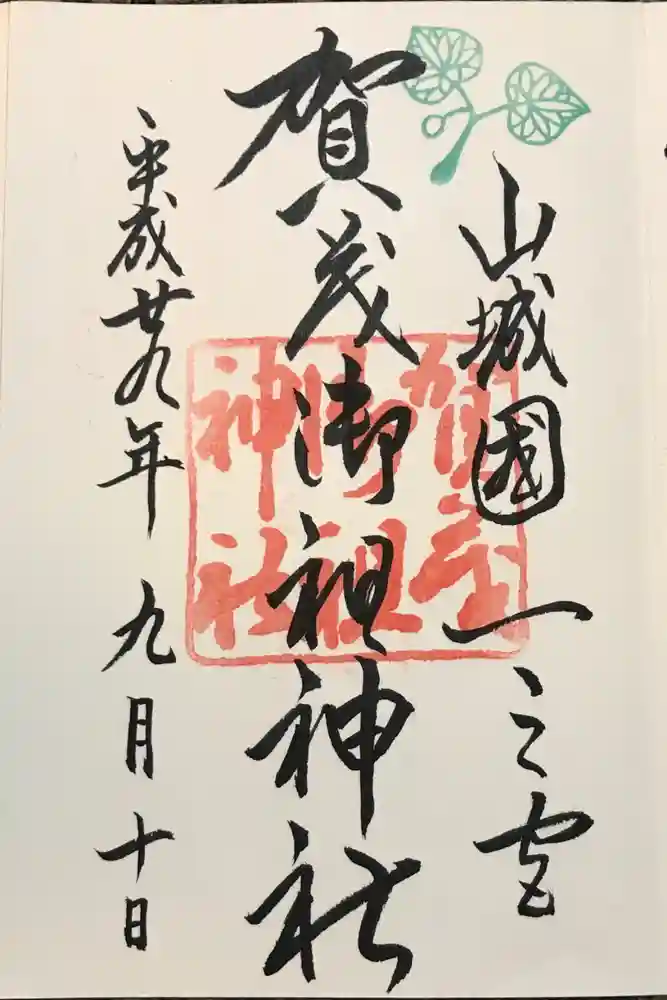 山城國一之宮
賀茂御祖神社
平成廿九年九月十日
賀茂
御祖
神社